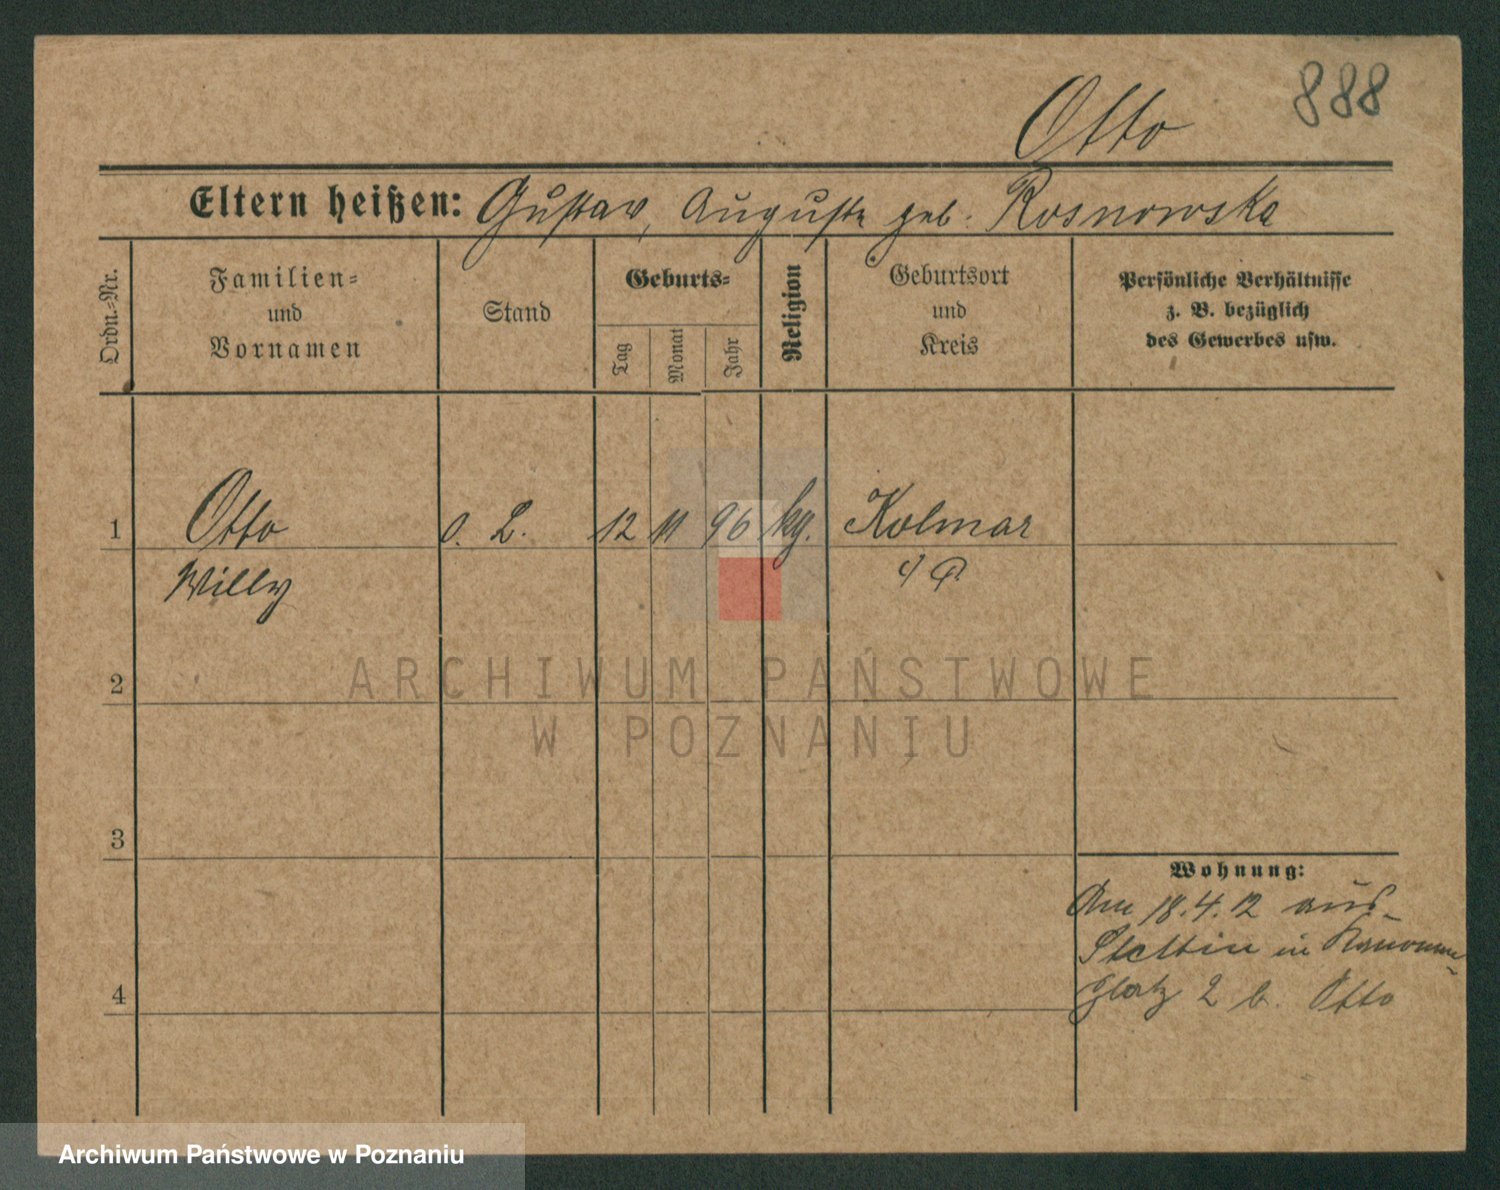 888
Otto
Eltern heißen: Gustav, Auguste geb. Rosnowska
Ordn.-Nr.
Familien-
und
Vornamen
Stand
Geburts-
Tag
Monat
Jahr
Religion
Geburtsort
und
Kreis
Persönliche Verhältnisse
z. B. bezüglich
des Gewerbes usw.
1 Otto o. L. 12 11 96 kg. Kolmar
Willy i/P
2
ARCHIWUM PAŃSTWOWE
W POZNANIU
3
Wohnung:
Am 18.4.12 aus
Stettin in
4
2 b. Otto
Archiwum Państwowe w Poznaniu